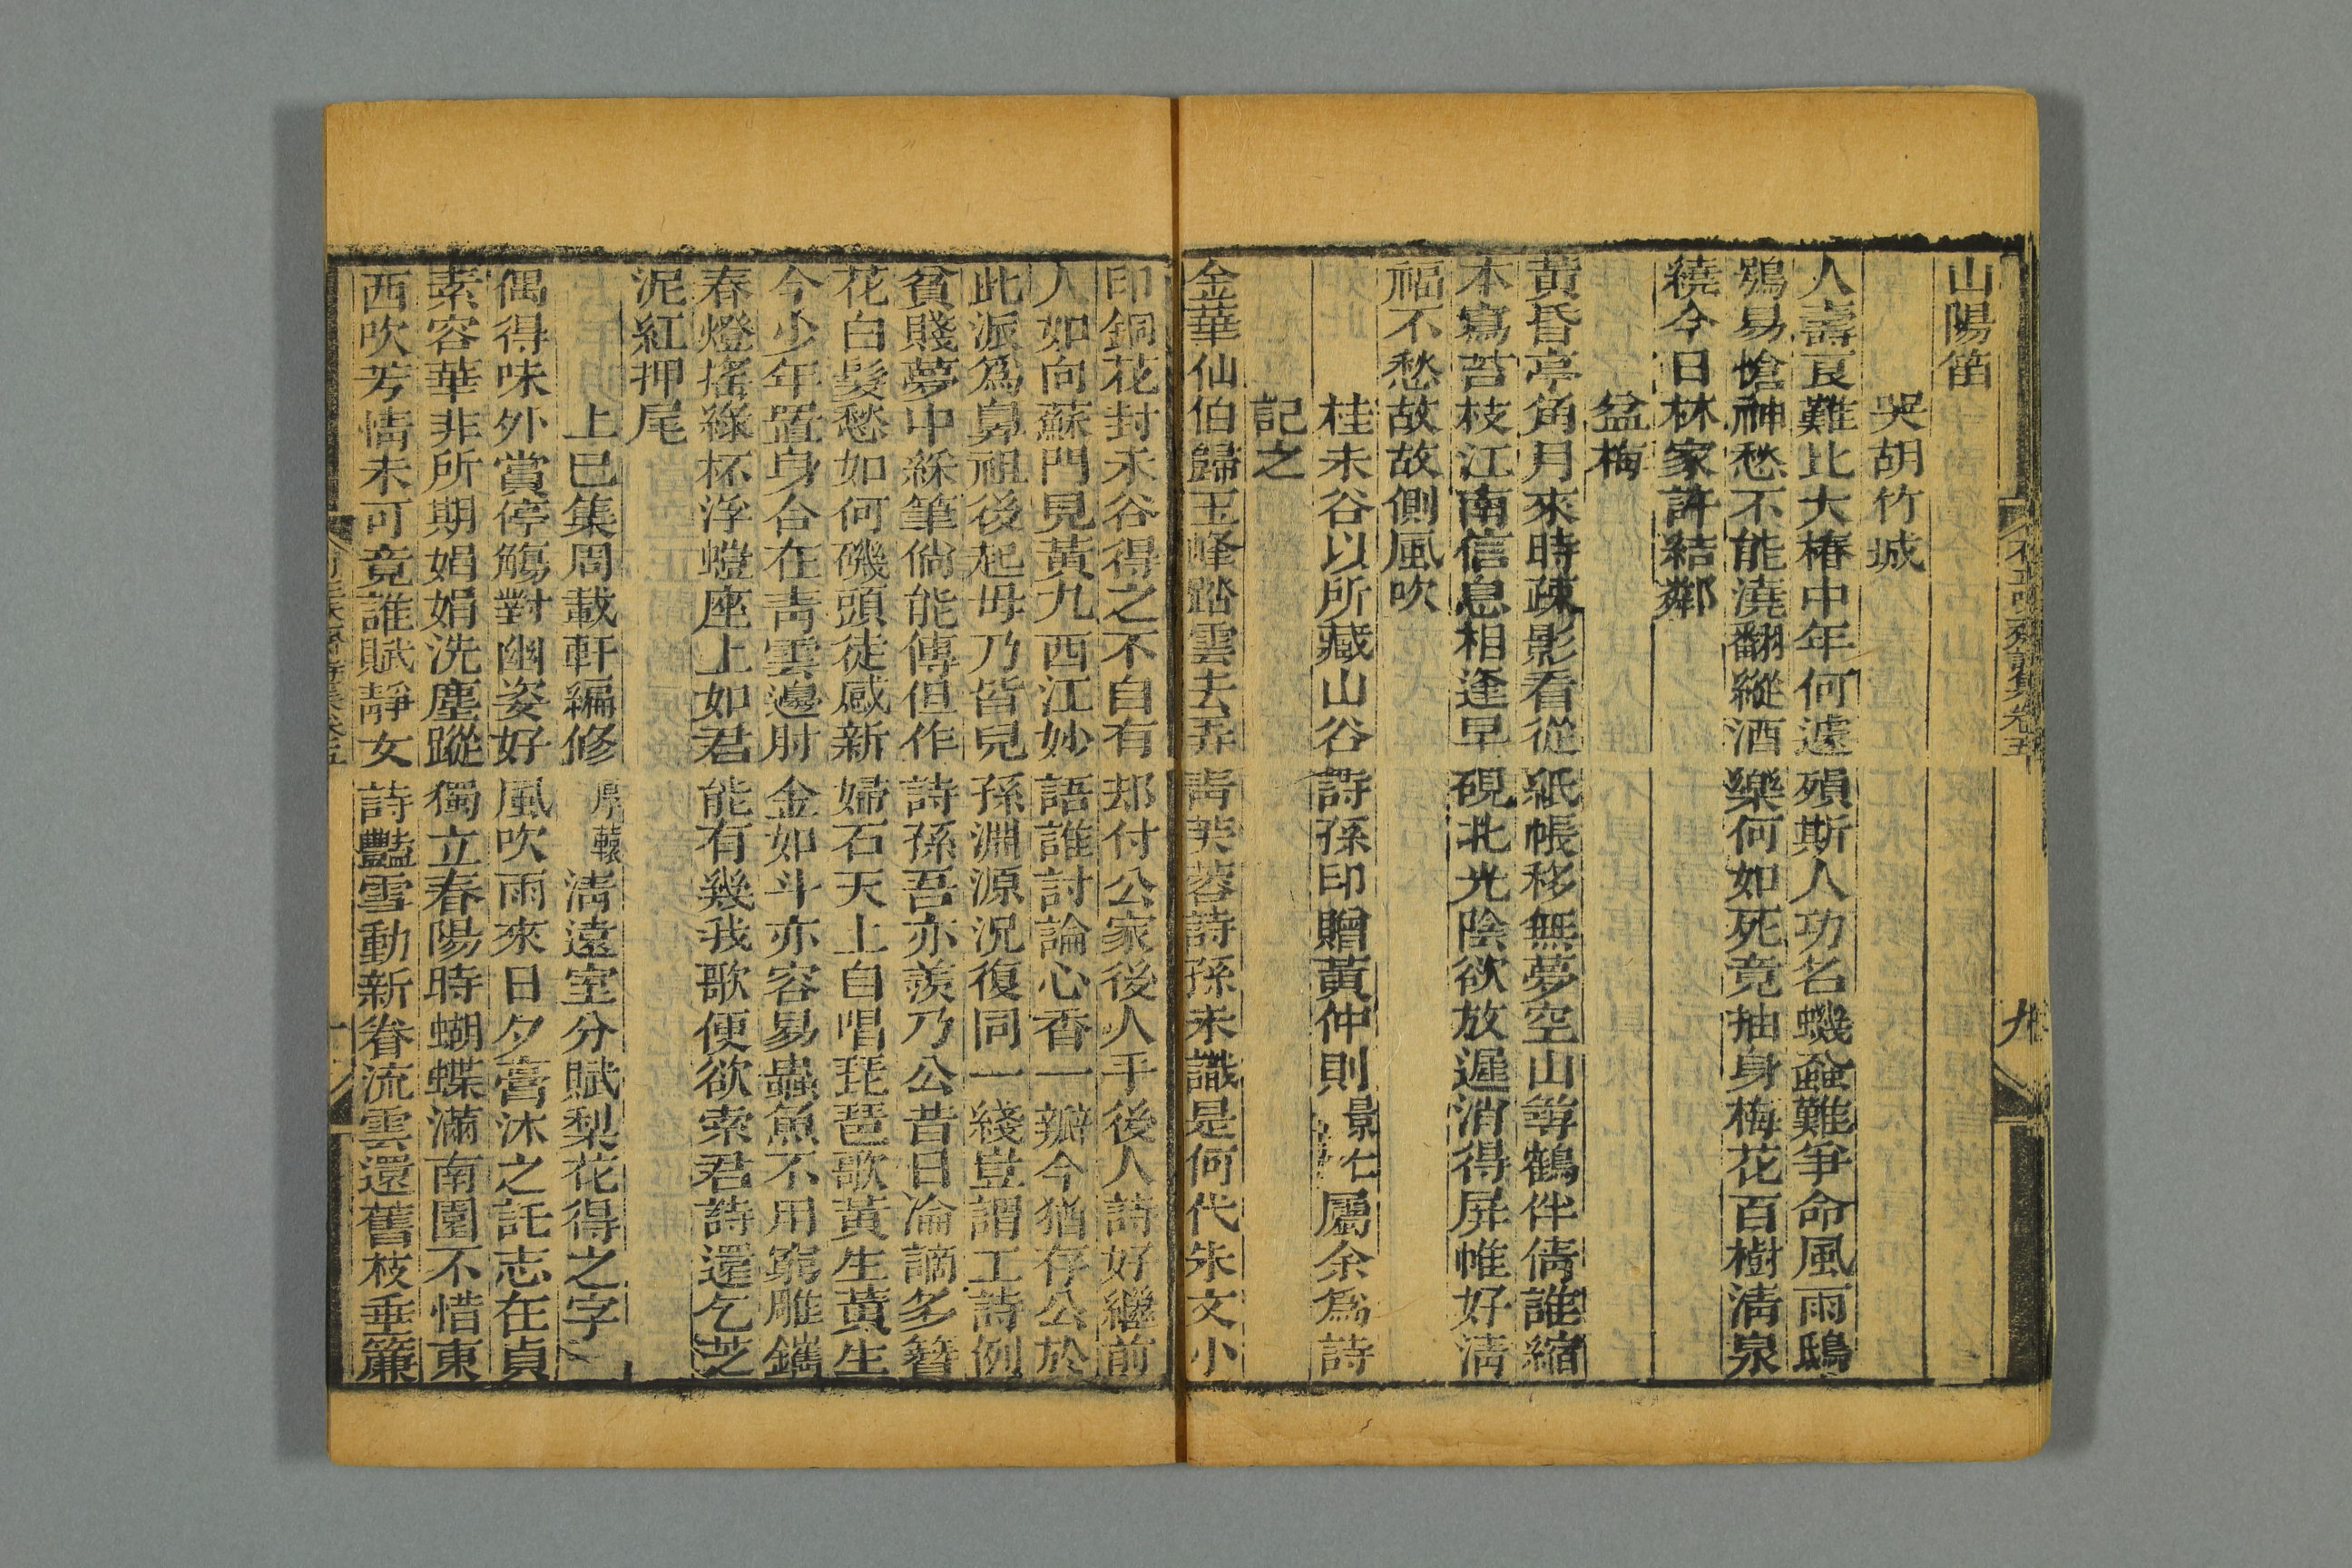 山陽笛
哭胡竹城
人壽良難比大椿中年何遽殞斯人功名蟣蝨難爭命風雨鴟
鴞易愴神愁不能澆翻縱酒樂何如死竟抽身梅花百樹清泉
繞今日林家許結鄰
盆梅
黃昏亭角月來時疎影看從紙帳移無夢空山等鶴伴倩誰縮
本寫苔枝江南信息相逢早硯北光陰欲放遲消得屏帷好清
福不愁故故側風吹
桂未谷以所藏山谷詩孫印贈黃仲則景仁屬余爲詩
記之
金華仙伯歸玉峰踏雲去弄青芙蓉詩孫未識是何代朱文小
印銅花封未谷得之不自有却付公家後人手後人詩好繼前
人如向蘇門見黃九西江妙語誰討論心香一瓣今猶存公於
此派爲鼻祖後起毋乃皆兒孫淵源況復同一綫豈謂工詩例
貧賤夢中綵筆倘能傳但作詩孫吾亦羨乃公昔日淪謫多簪
花白髮愁如何磯頭徒感新婦石天上自唱琵琶歌黃生黃生
今少年置身合在青雲邊肘金如斗亦容易蟲魚不用窮雕鐫
春燈搖綠杯浮螘座上如君能有幾我歌便欲索君詩還乞芝
泥紅押尾
上巳集周載軒編修厚轅清遠室分賦梨花得之字
偶得味外賞停觴對幽姿好風吹雨來日夕膏沐之託志在貞
素容華非所期娟娟洗塵蹤獨立春陽時蝴蝶滿南園不惜東
西吹芳情未可竟誰賦靜女詩豔雪動新眷流雲還舊枝垂簾